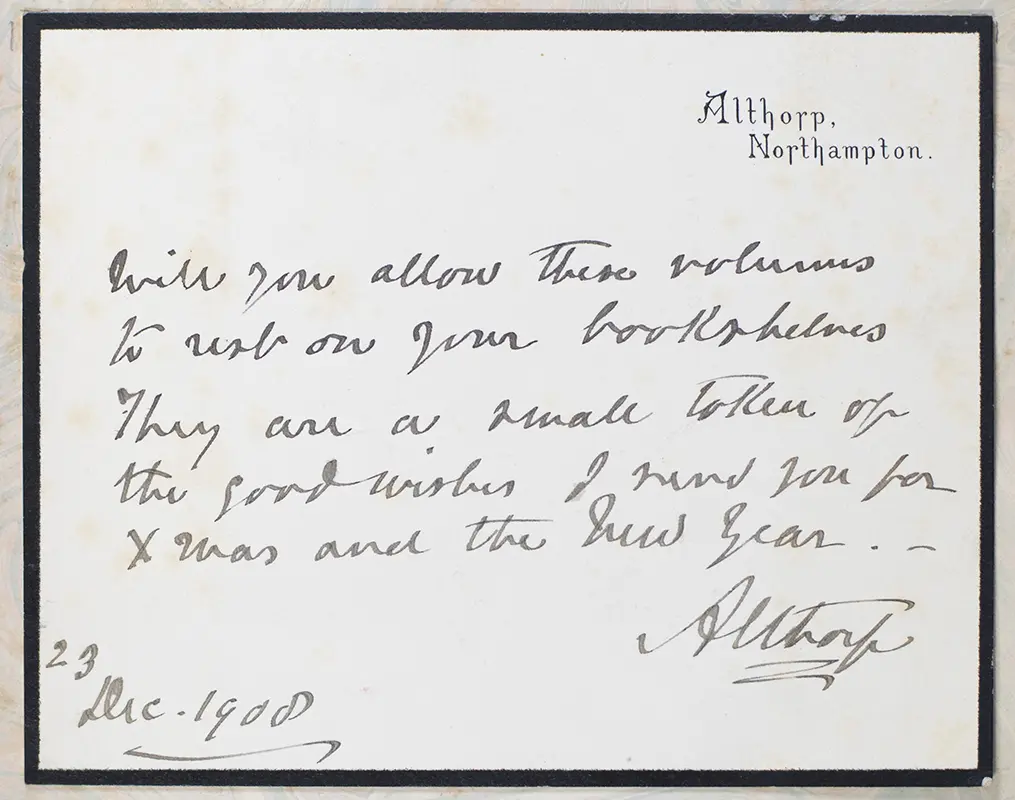 Althorp,
Northampton.
Will you allow these volumes
to rest on your bookshelves
They are a small token of
the good wishes I send you for
Xmas and the New Year . –
Althorp
23
Dec . 1908